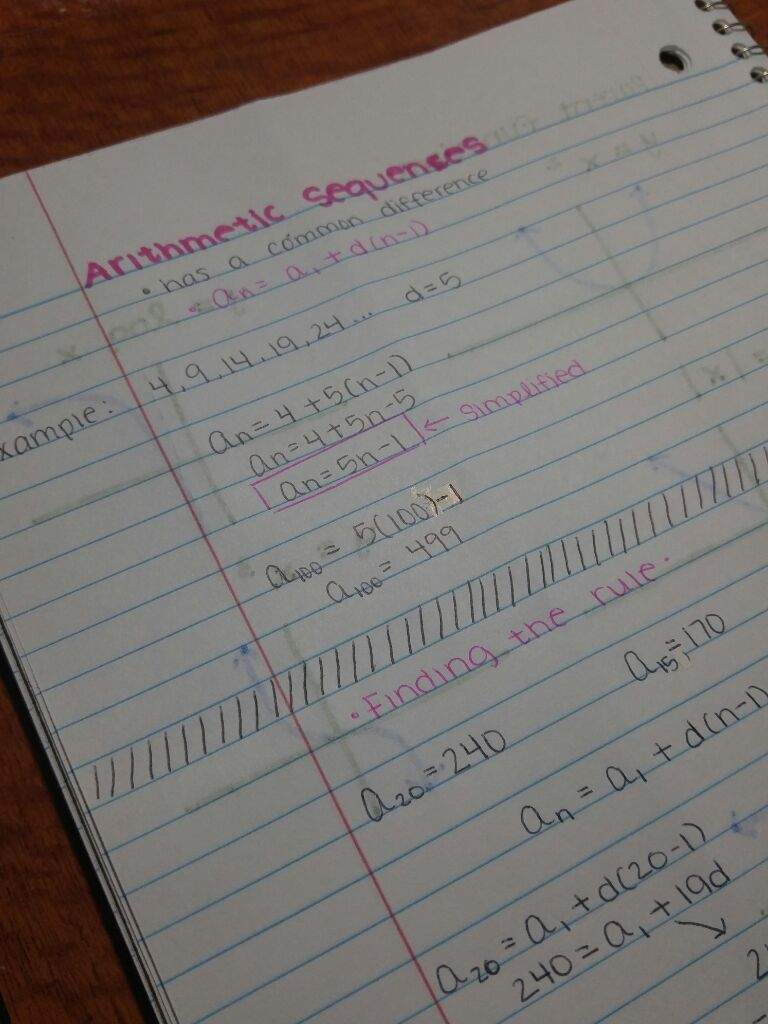 Arithmetic Sequences
• has a common difference
• an = a1 + d(n-1)
xample: 4, 9, 14, 19, 24... d=5
an = 4 + 5(n-1)
an = 4 + 5n - 5
an = 5n - 1 ← simplified
a100 = 5(100) - 1
a100 = 499
• Finding the rule.
a20 = 240 a15 = 170
an = a1 + d(n-1)
a20 = a1 + d(20-1)
240 = a1 + 19d